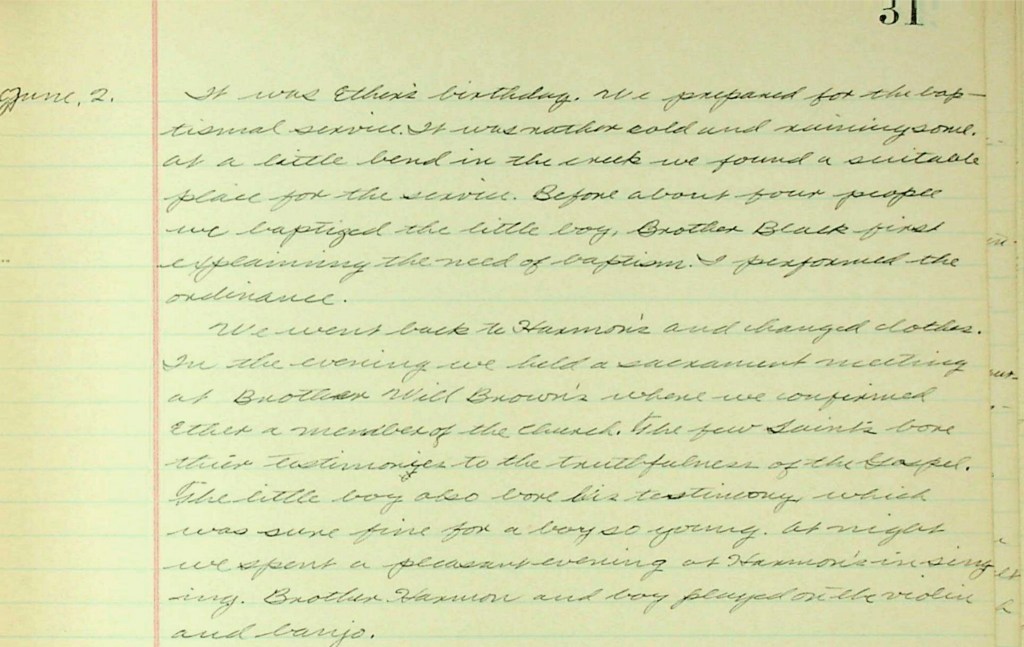 31
June, 2. It was Ether's birthday. We prepared for the bap-
tismal service. It was rather cold and raining some.
At a little bend in the creek we found a suitable
place for the service. Before about four people
we baptized the little boy, Brother Black first
explaining the need of baptism. I performed the
ordinance.
We went back to Harmon's and changed clothes.
In the evening we held a sacrament meeting
at Brother Will Brown's where we confirmed
Ether a member of the church. The few Saints bore
their testimonies to the truthfulness of the Gospel.
The little boy also bore his testimony, which
was sure fine for a boy so young. At night
we spent a pleasant evening at Harmon's in sing
ing. Brother Harmon and boy played on the violin
and banjo.